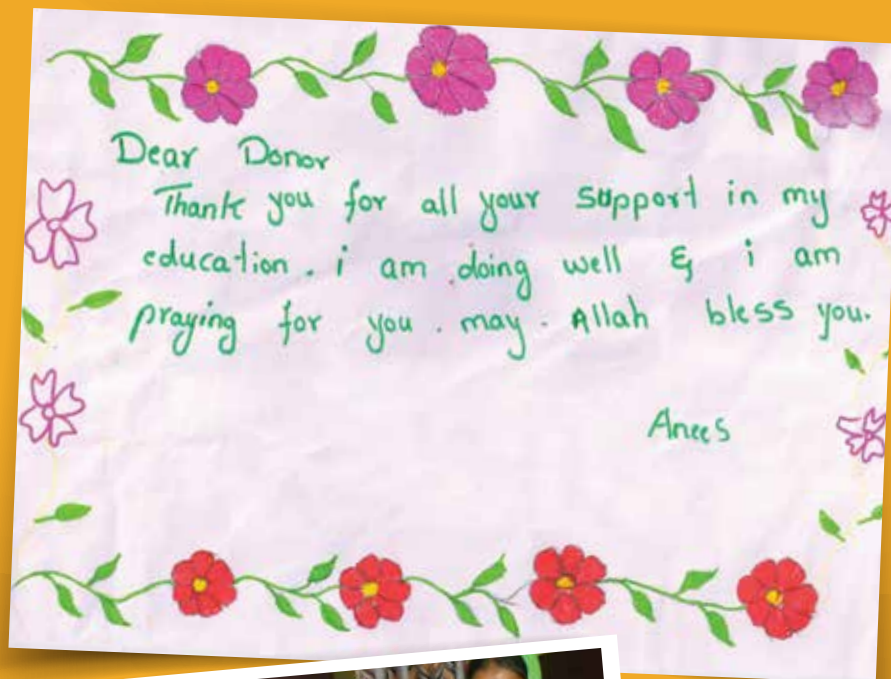 Dear Donor
Thank you for all your support in my
education. i am doing well & i am
praying for you. may. Allah bless you.
Anees